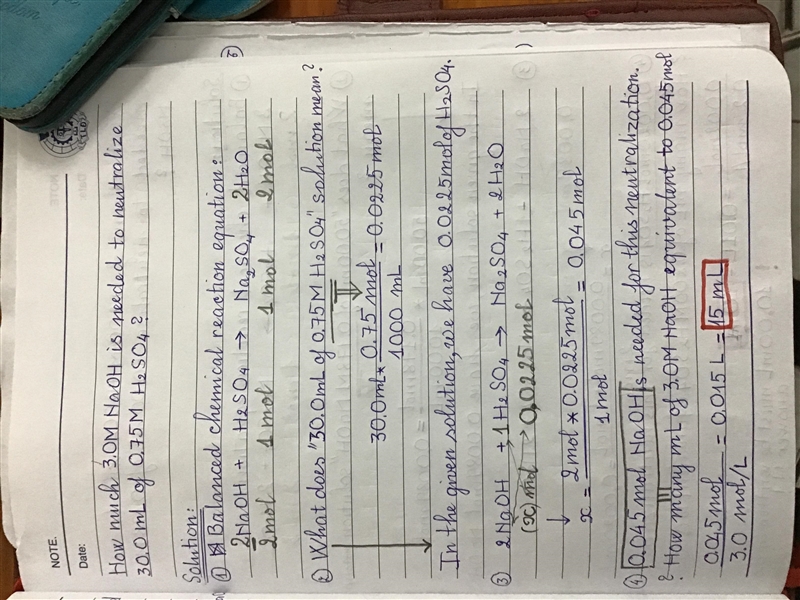 NOTE.
Date:
How much 3.0M NaOH is needed to neutralize
30.0 mL of 0.75M H2SO4 ?
Solution:
① Balanced chemical reaction equation:
2NaOH + H2SO4 → Na2SO4 + 2H2O
2mol 1 mol 1 mol 2 mol
② What does "30.0mL of 0.75M H2SO4" solution mean?
30.0mL * 0.75 mol / 1000 mL = 0.0225 mol
In the given solution, we have 0.0225 mol of H2SO4.
③ 2NaOH + 1H2SO4 → Na2SO4 + 2H2O
(x) mol → 0,0225 mol
x = 2mol * 0.0225mol / 1mol = 0.045 mol
④ 0.045 mol NaOH is needed for this neutralization.
? How many mL of 3.0M NaOH equivalent to 0.045 mol
0.045 mol / 3.0 mol/L = 0.015 L = 15 mL